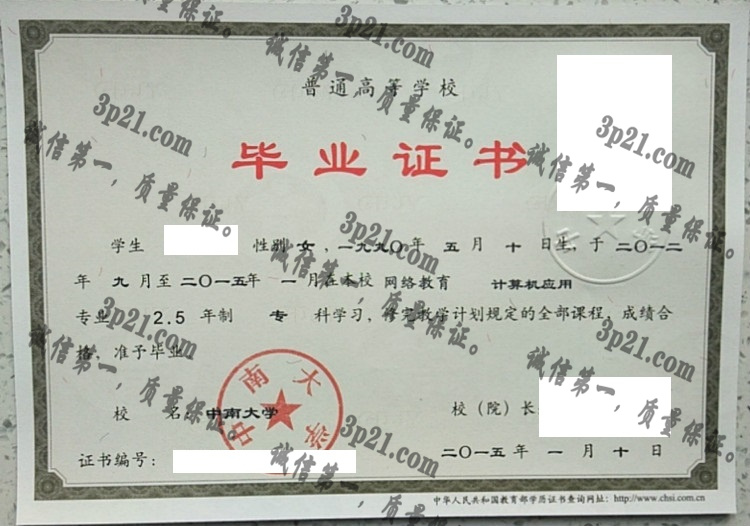 普通高等学校
毕业证书
学生 性别 女，一九九〇年 五月 十日生，于二〇一二
年 九月至二〇一五年 一月在本校 网络教育 计算机应用
专业 2.5 年制 专 科学习，修完教学计划规定的全部课程，成绩合
格，准予毕业
中南大学
校 名：中南大学
校（院）长：
证书编号：
二〇一五年 一月 十日
中华人民共和国教育部学历证书查询网址：http://www.chsi.com.cn
3p21.com
诚信第一，质量保证。
3p21.com
诚信第一，质量保证。
3p21.com
诚信第一，质量保证。
3p21.com
诚信第一，质量保证。
3p21.com
诚信第一，质量保证。
3p21.com
诚信第一，质量保证。
3p21.com
诚信第一，质量保证。
3p21.com
诚信第一，质量保证。